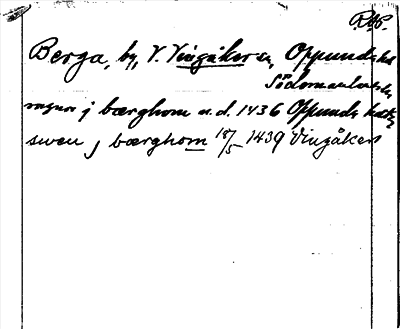 R.A.P.
Berga, by, V. Vingåker sn, Oppunda hd
Södermanlands
ragnar j bærghom u.d. 1436 Oppunda
swen j bærghom 18/5 1439 Vingåker